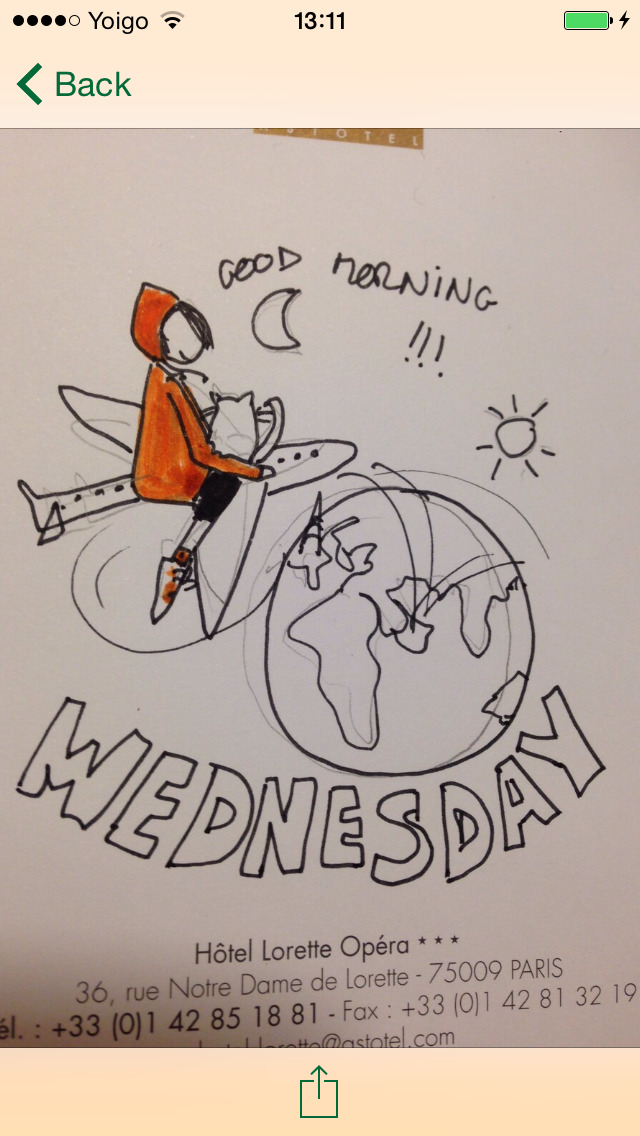 Yoigo 13:11
Back
ASTOTEL
GOOD MORNING
!!!
WEDNESDAY
Hôtel Lorette Opéra ***
36, rue Notre Dame de Lorette - 75009 PARIS
él. : +33 (0)1 42 85 18 81 - Fax : +33 (0)1 42 81 32 19
@astotel.com